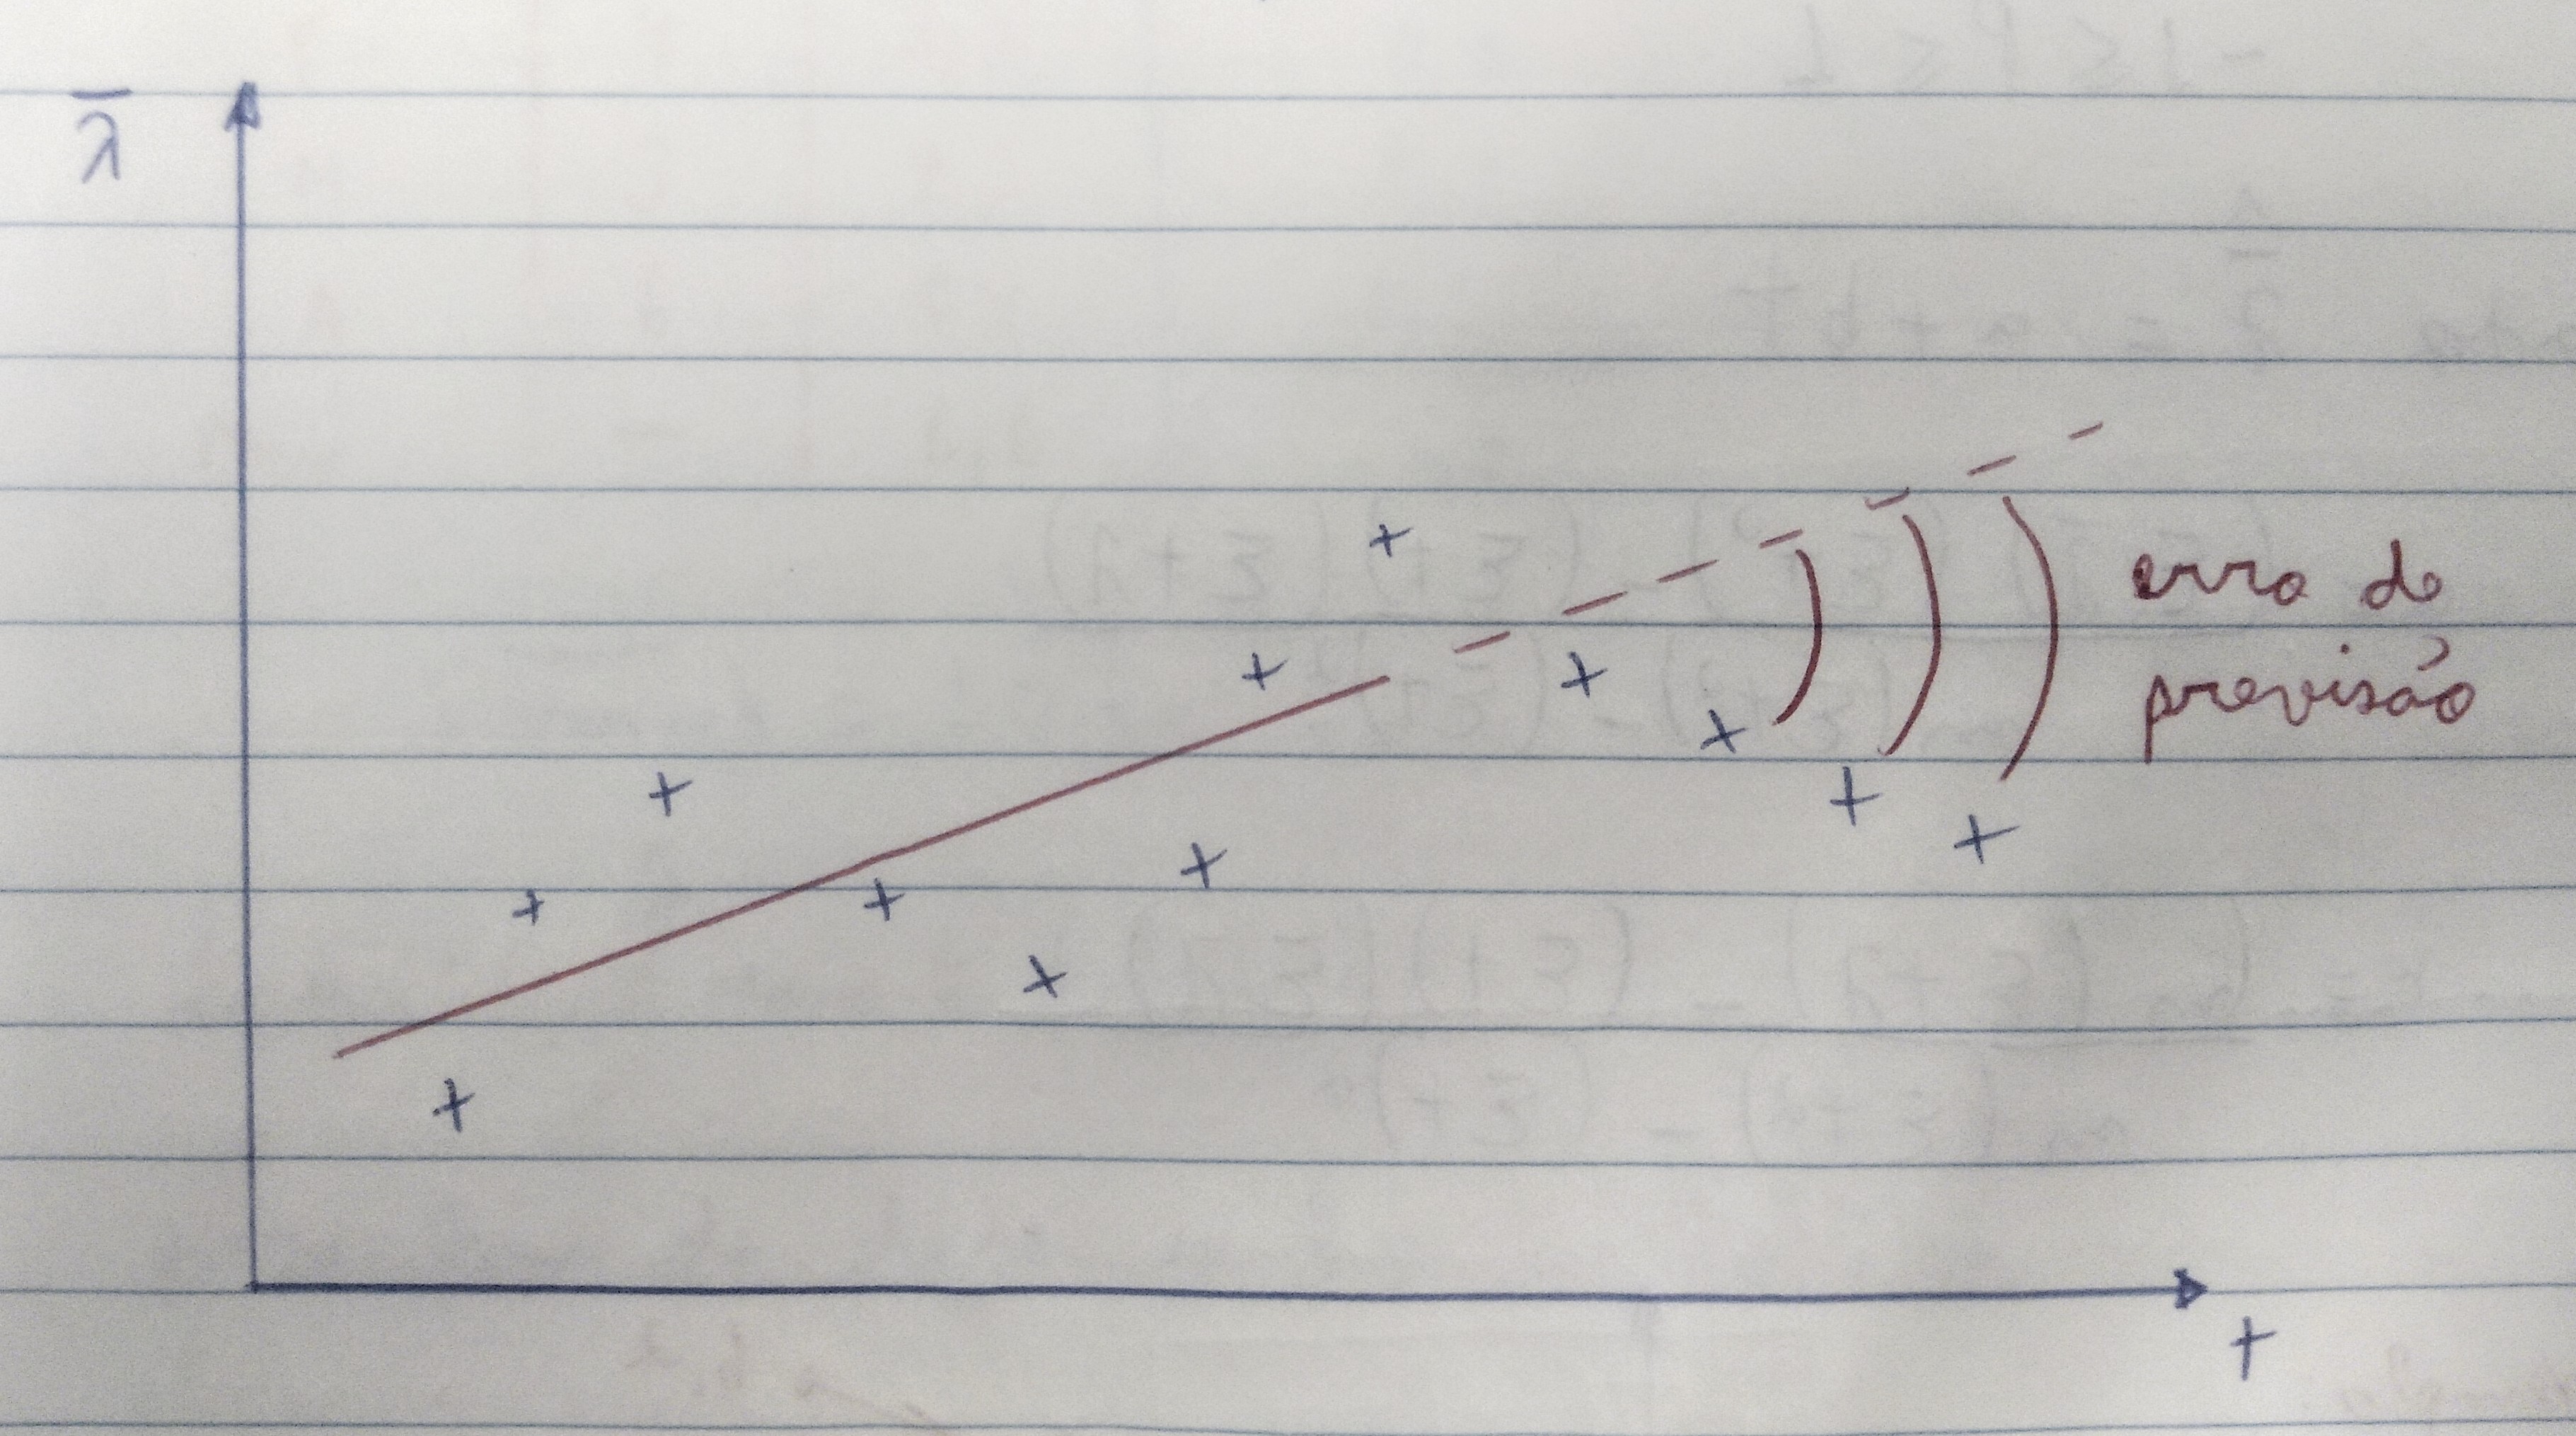 λ̄
erro de
previsão
t